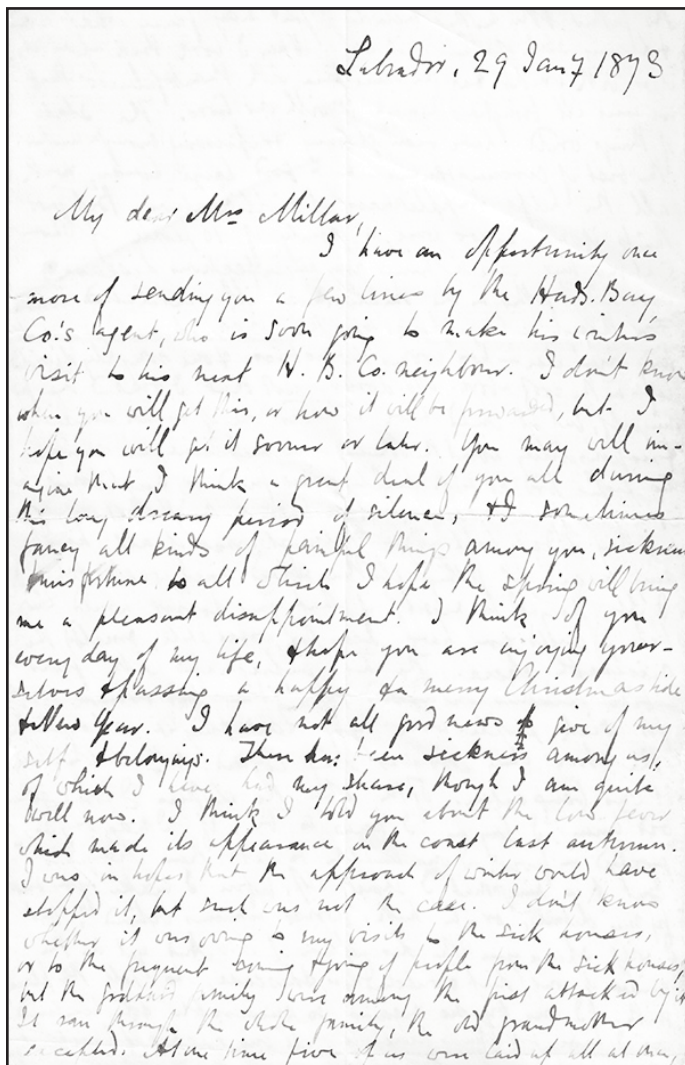 Labrador, 29 Jany 1873
My dear Mrs Millar,
I have an opportunity once
more of sending you a few lines by the Huds. Bay
Co.'s agent, who is soon going to make his winters
visit to his next H. B. Co. neighbour. I don't know
when you will get this, or how it will be forwarded, but I
hope you will get it sooner or later. You may well im-
agine that I think a great deal of you all during
this long dreary period of silence, & I sometimes
fancy all kinds of painful things among you, sickness
misfortune to all which I hope the spring will bring
me a pleasant disappointment. I think of you
every day of my life, & hope you are enjoying your-
selves & passing a happy & a merry Christmas tide
& New Year. I have not all good news to give of my
self & belongings. There has been sickness among us,
of which I have had my share, though I am quite
well now. I think I told you about the low fever
which made its appearance on the coast last autumn.
I was in hopes that the approach of winter would have
stopped it, but such was not the case. I don't know
whether it was owing to my visits to the sick houses,
or to the frequent coming & going of people from the sick houses,
but the family were among the first attacked by it
It ran through the whole family, the old grandmother
excepted. At one time five of us were laid up all at once,